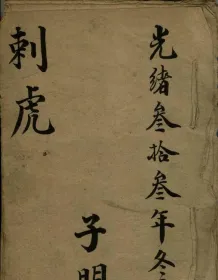 光緒叁拾叁年冬
刺虎
子明